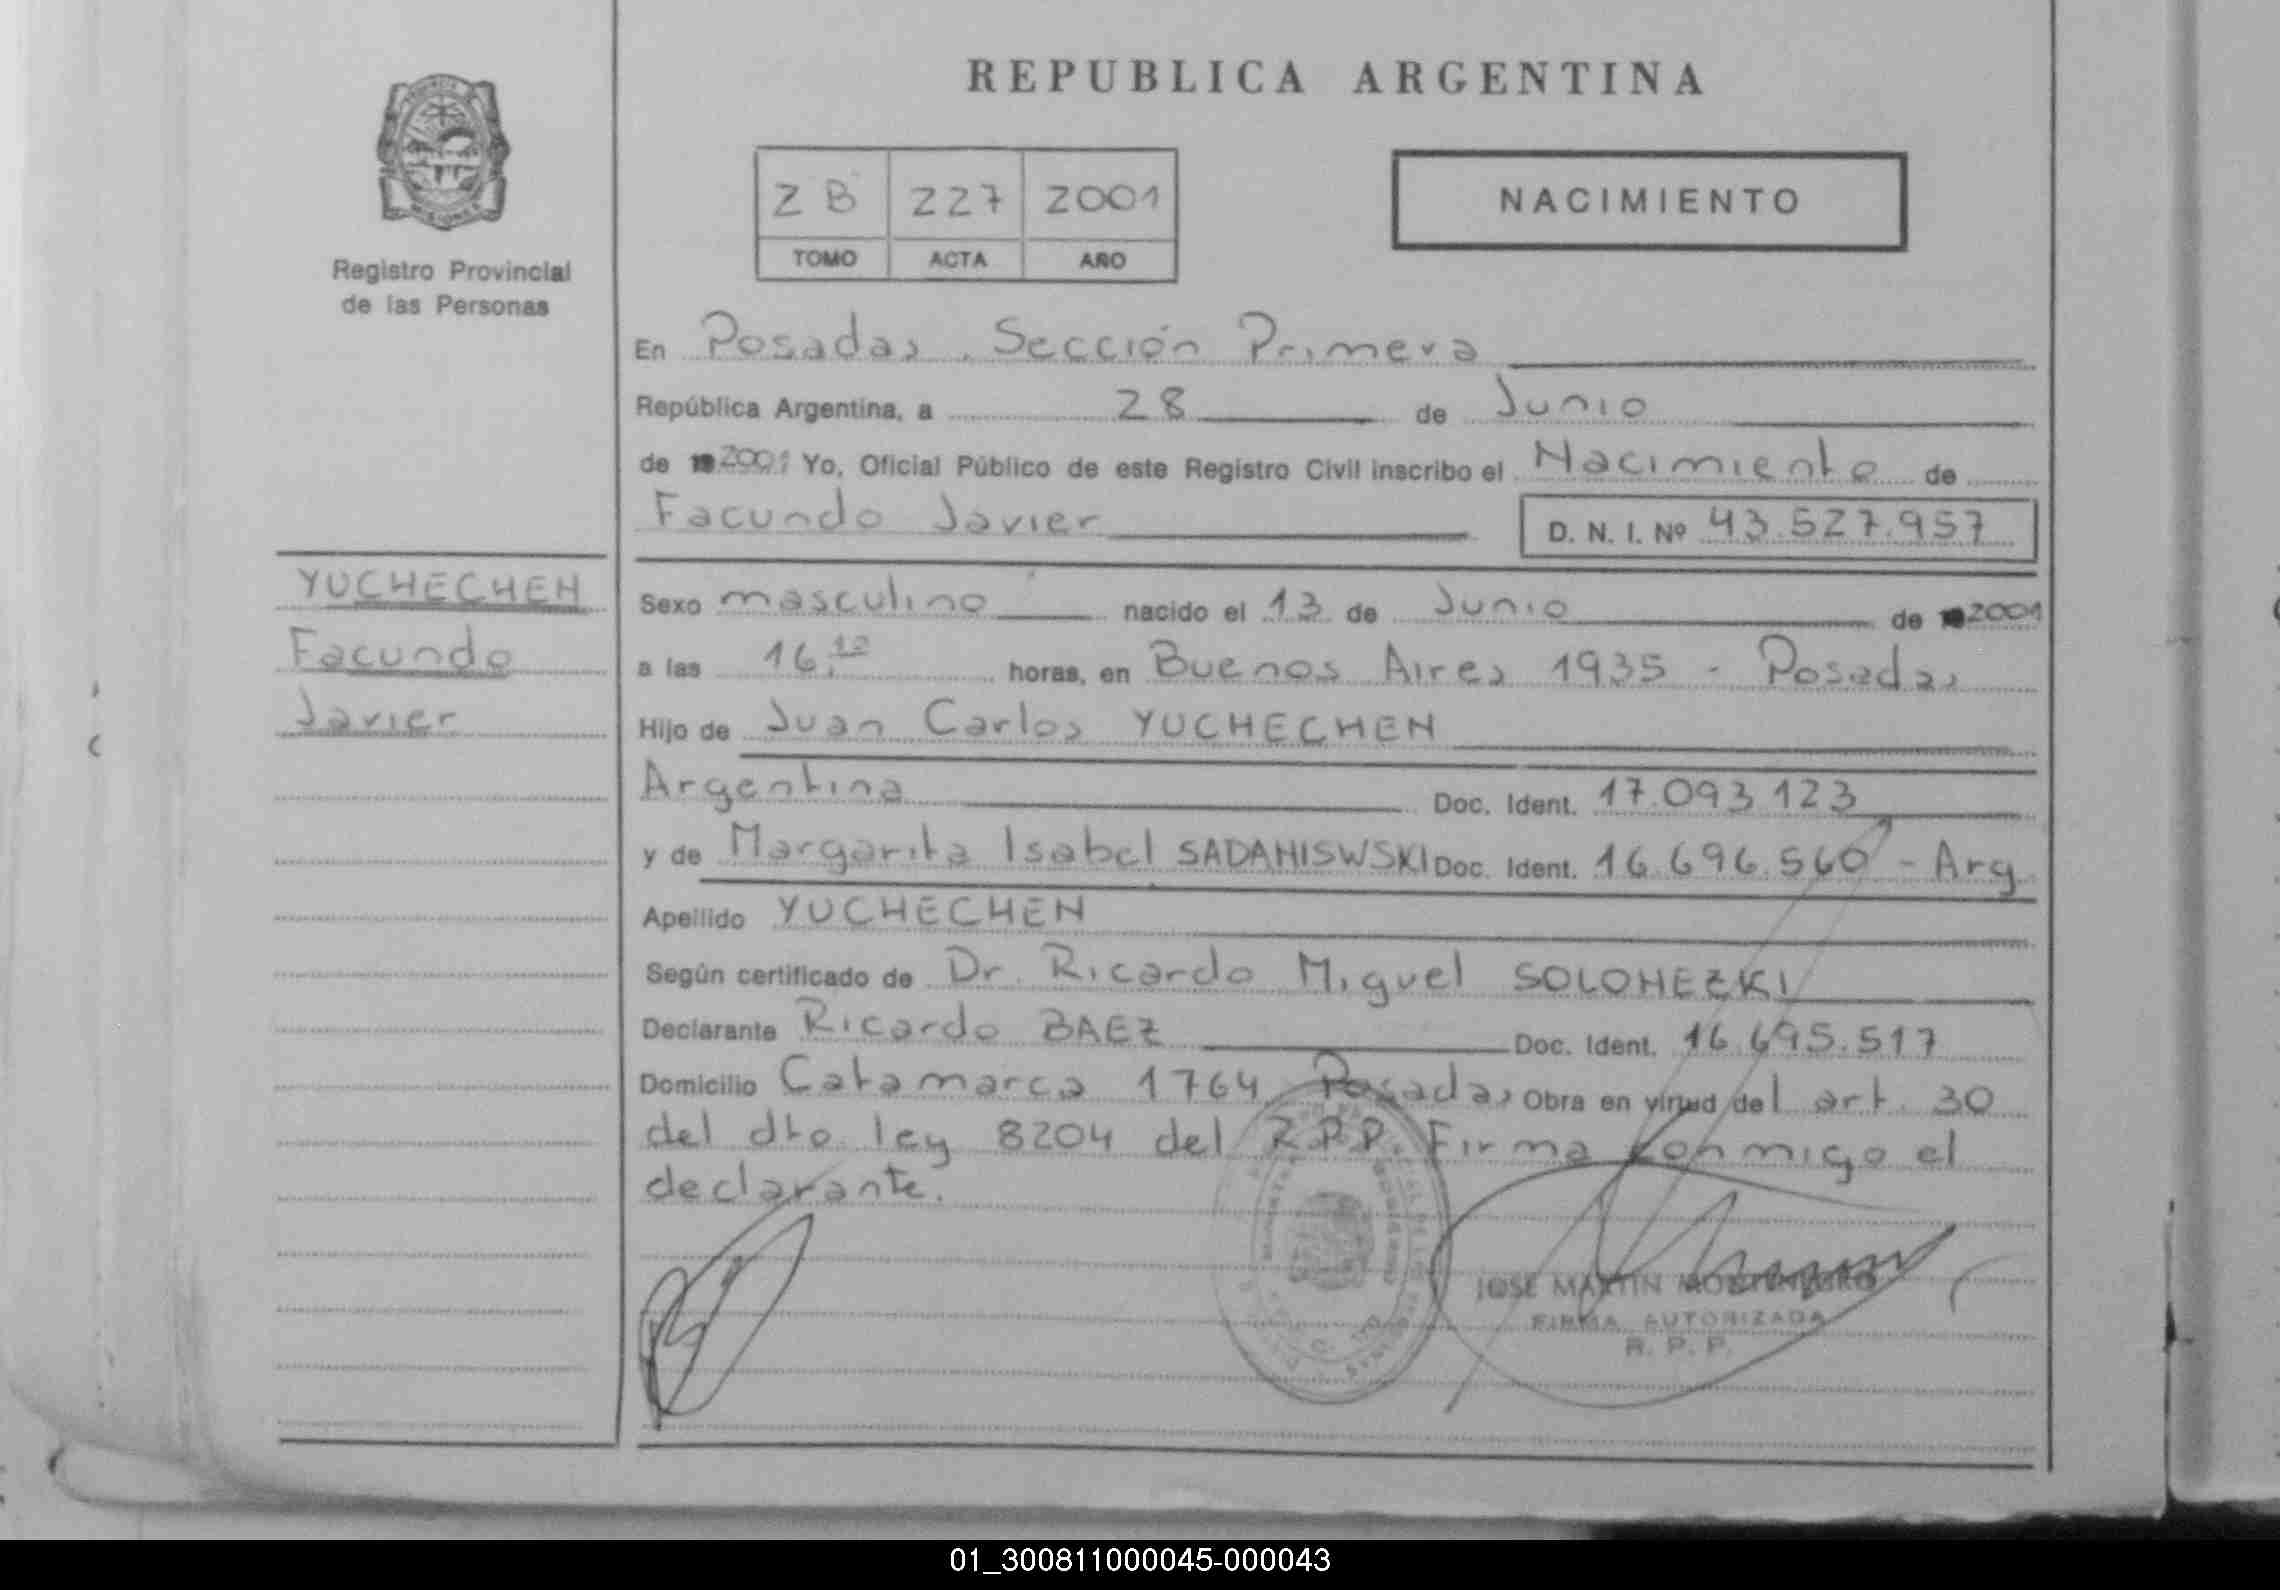 REPUBLICA ARGENTINA
Registro Provincial
de las Personas
2B 227 2001
TOMO ACTA AÑO
NACIMIENTO
En Posadas, Sección Primera
República Argentina, a 28 de Junio
de 2001 Yo, Oficial Público de este Registro Civil inscribo el Nacimiento de
Facundo Javier D. N. I. Nº 43.527.957
YUCHECHEN
Facundo
Javier
Sexo masculino nacido el 13 de Junio de 2001
a las 16.10 horas, en Buenos Aires 1935 - Posadas
Hijo de Juan Carlos YUCHECHEN
Argentina Doc. Ident. 17.093.123
y de Margarita Isabel SADANISWSKI Doc. Ident. 16.696.560 - Arg
Apellido YUCHECHEN
Según certificado de Dr. Ricardo Miguel SOLONEZKI
Declarante Ricardo BAEZ Doc. Ident. 16.695.517
Domicilio Catamarca 1764 Posadas Obra en virtud del art. 30
del dto ley 8204 del R.P.P. Firma conmigo el
declarante.
JOSE MARTIN
FIRMA AUTORIZADA
R. P. P.
01_300811000045-000043